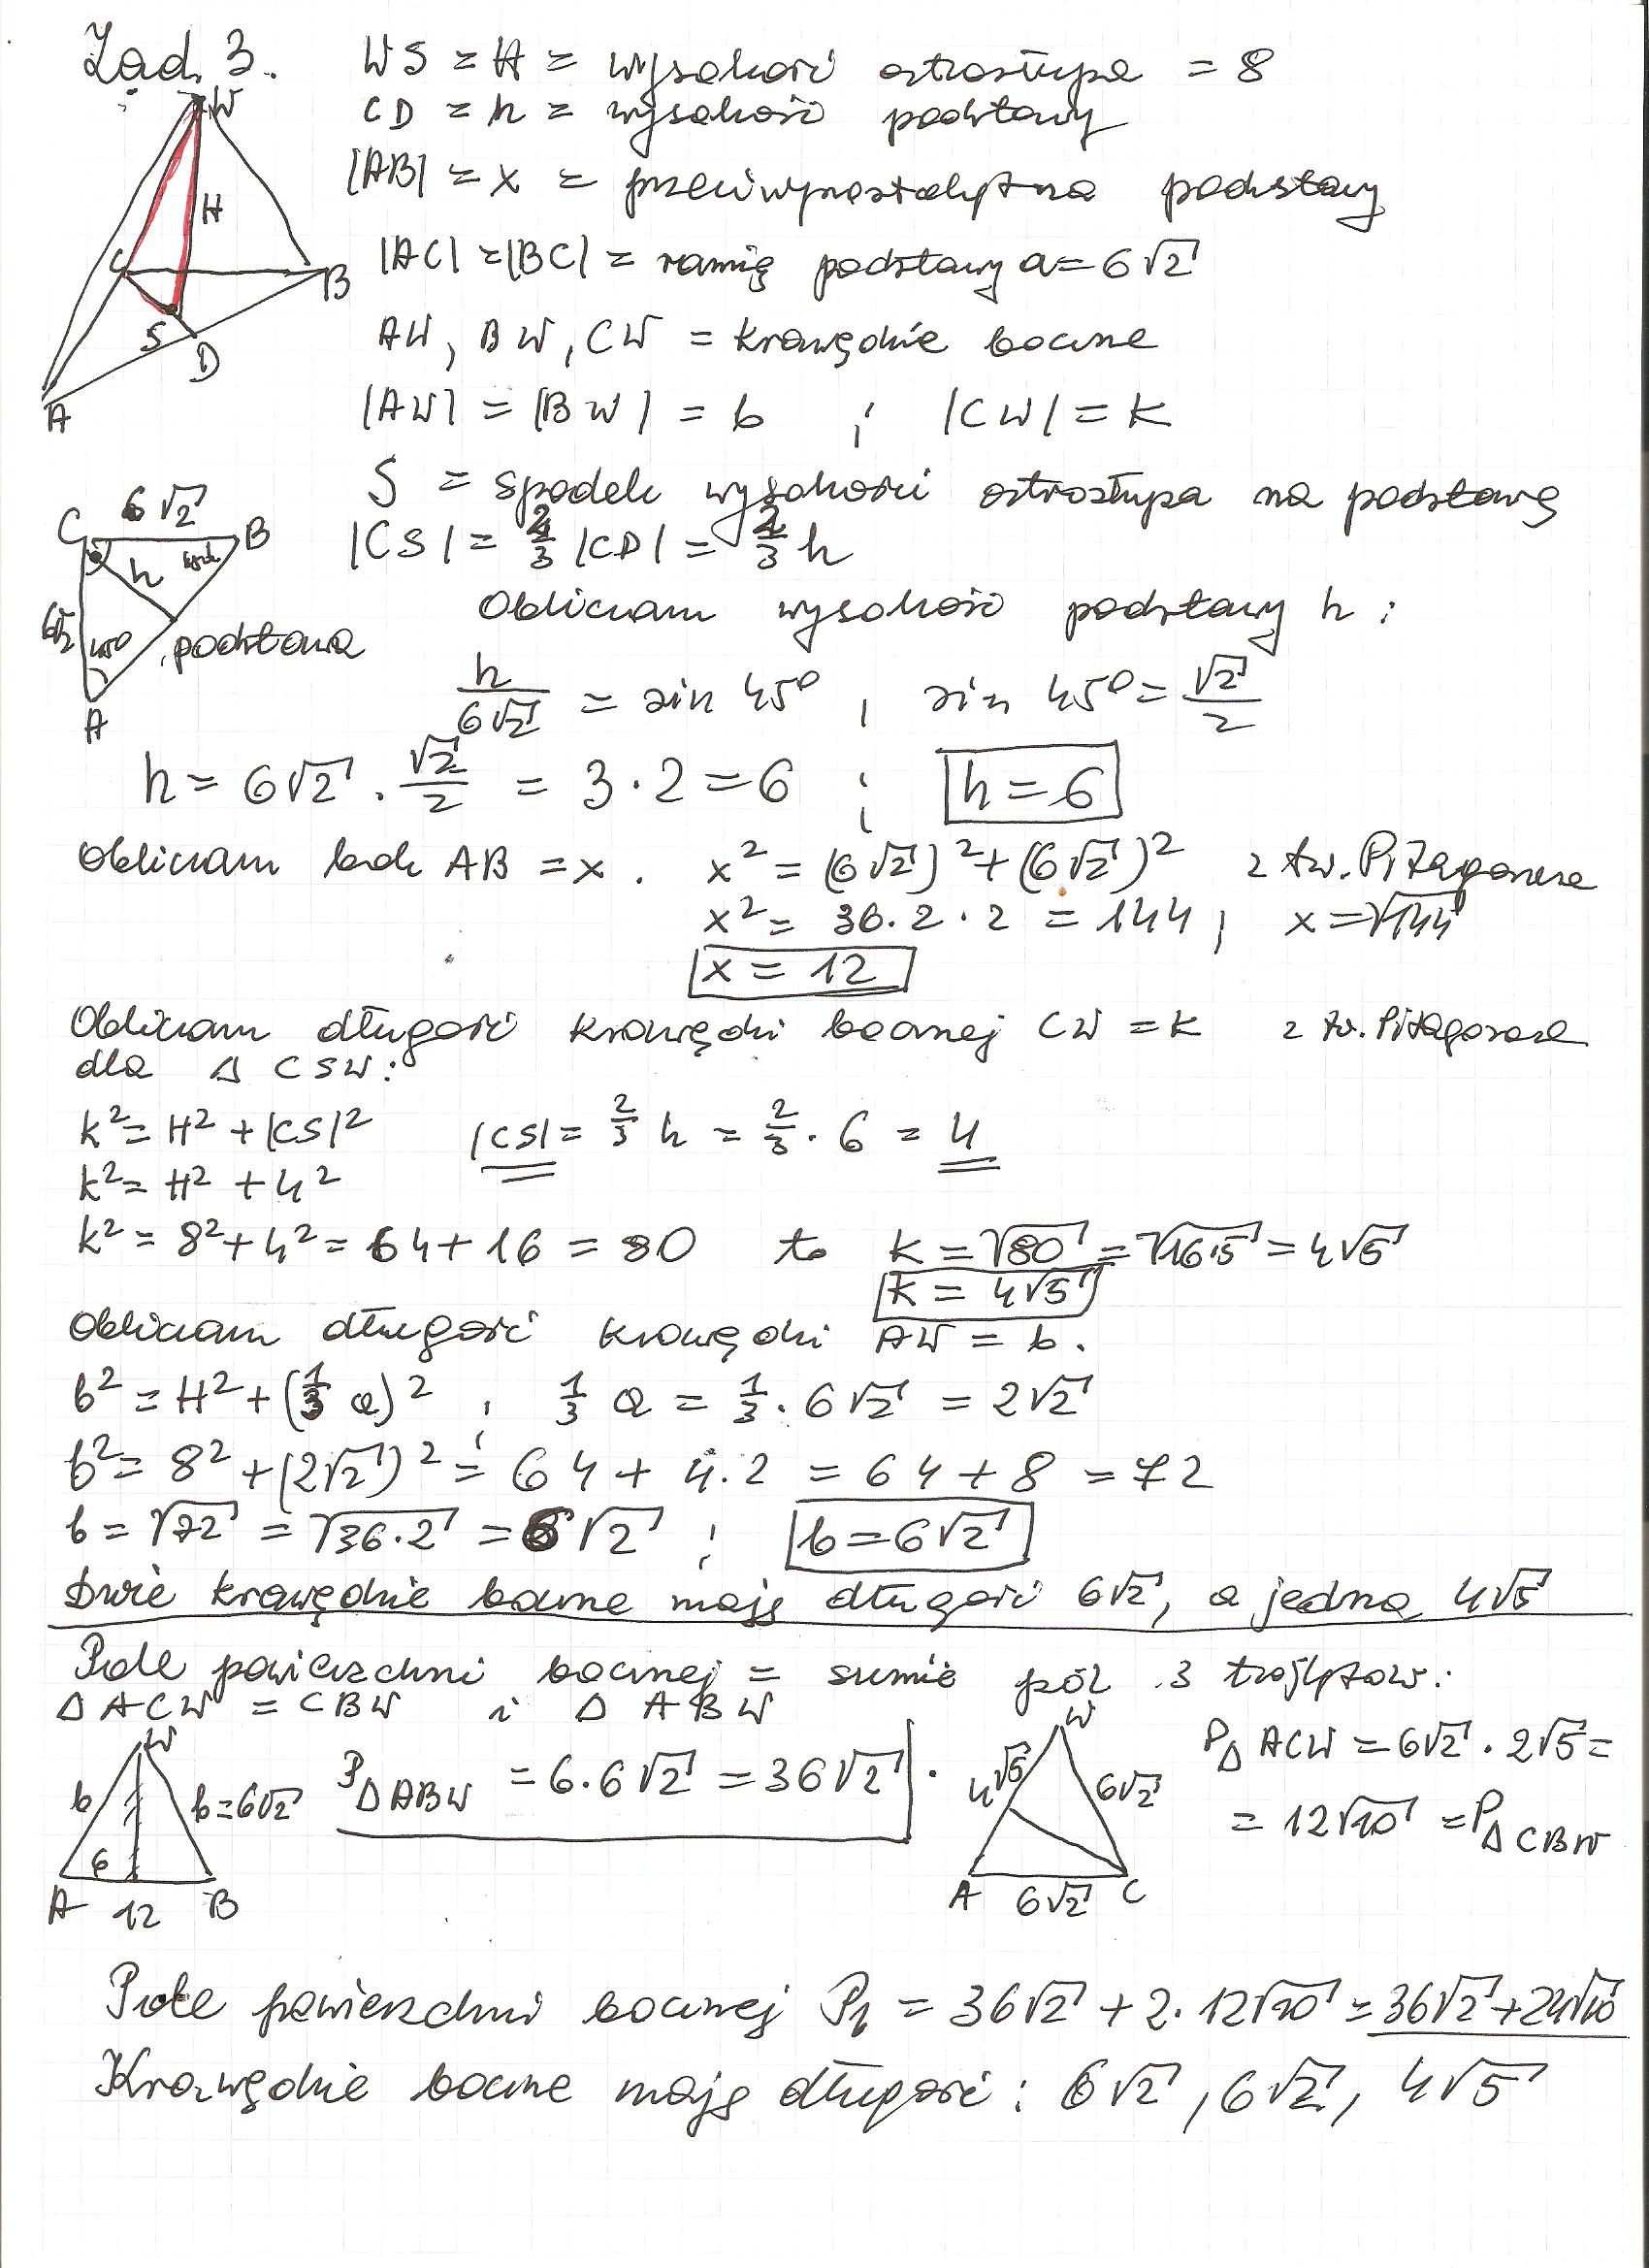 Zad. 3.
WS = H = wysokość ostrosłupa = 8
CD = h = wysokość podstawy
|AB| = x = przeciwprostokątna podstawy
|AC| = |BC| = ramię podstawy a = 6√2
AW, BW, CW = krawędzie boczne
|AW| = |BW| = b ; |CW| = k
S = spodek wysokości ostrosłupa na podstawę
|CS| = 2/3 |CD| = 2/3 h
W
H
C
B
S
D
A
6√2
C
B
h
45°
6√2
45°
podstawa
A
Obliczam wysokość podstawy h :
h/6√2 = sin 45° , sin 45° = √2/2
h = 6√2 · √2/2 = 3 · 2 = 6 ; h = 6
Obliczam bok AB = x . x² = (6√2)² + (6√2)² z tw. Pitagorasa
x² = 36 · 2 · 2 = 144 ; x = √144
x = 12
Obliczam długość krawędzi bocznej CW = k z tw. Pitagorasa
dla Δ CSW:
k² = H² + |CS|² |CS| = 2/3 h = 2/3 · 6 = 4
k² = H² + 4²
k² = 8² + 4² = 64 + 16 = 80 to k = √80 = √16·5 = 4√5
k = 4√5
Obliczam długość krawędzi AW = b .
b² = H² + (1/3 a)² ; 1/3 a = 1/3 · 6√2 = 2√2
b² = 8² + (2√2)² = 64 + 4·2 = 64 + 8 = 72
b = √72 = √36·2 = 6√2 ; b = 6√2
Dwie krawędzie boczne mają długość 6√2, a jedna 4√5
Pole powierzchni bocznej = sumie pól 3 trójkątów:
Δ ACW = CBW i Δ ABW
W
b
b = 6√2
6
A 12 B
PΔABW = 6·6√2 = 36√2
W
4√5
6√2
A 6√2 C
PΔ ACW = 6√2 · 2√5 =
= 12√10 = PΔCBW
Pole powierzchni bocznej Pb = 36√2 + 2·12√10 = 36√2 + 24√10
Krawędzie boczne mają długość : 6√2, 6√2, 4√5